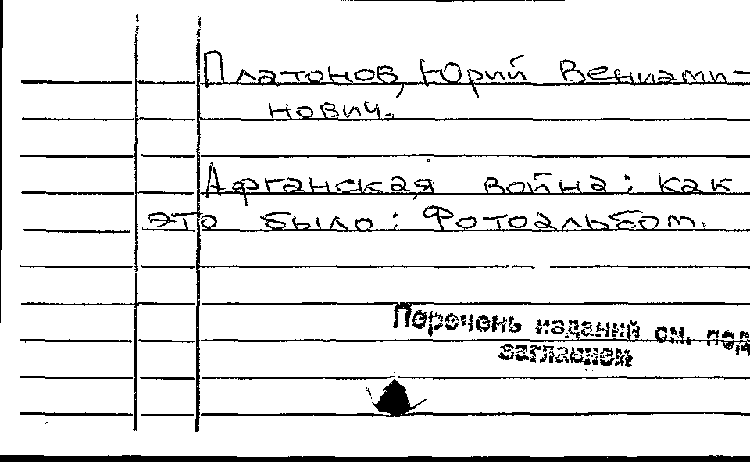 Платонов, Юрий Вениами-
нович.
Афганская война: как
это было: Фотоальбом.
Перечень изданий см. под
заглавием